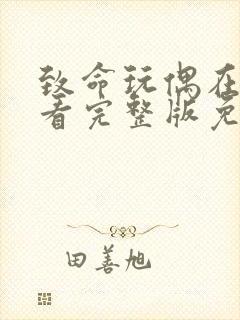 致命玩偶在
看完整版免
田善旭